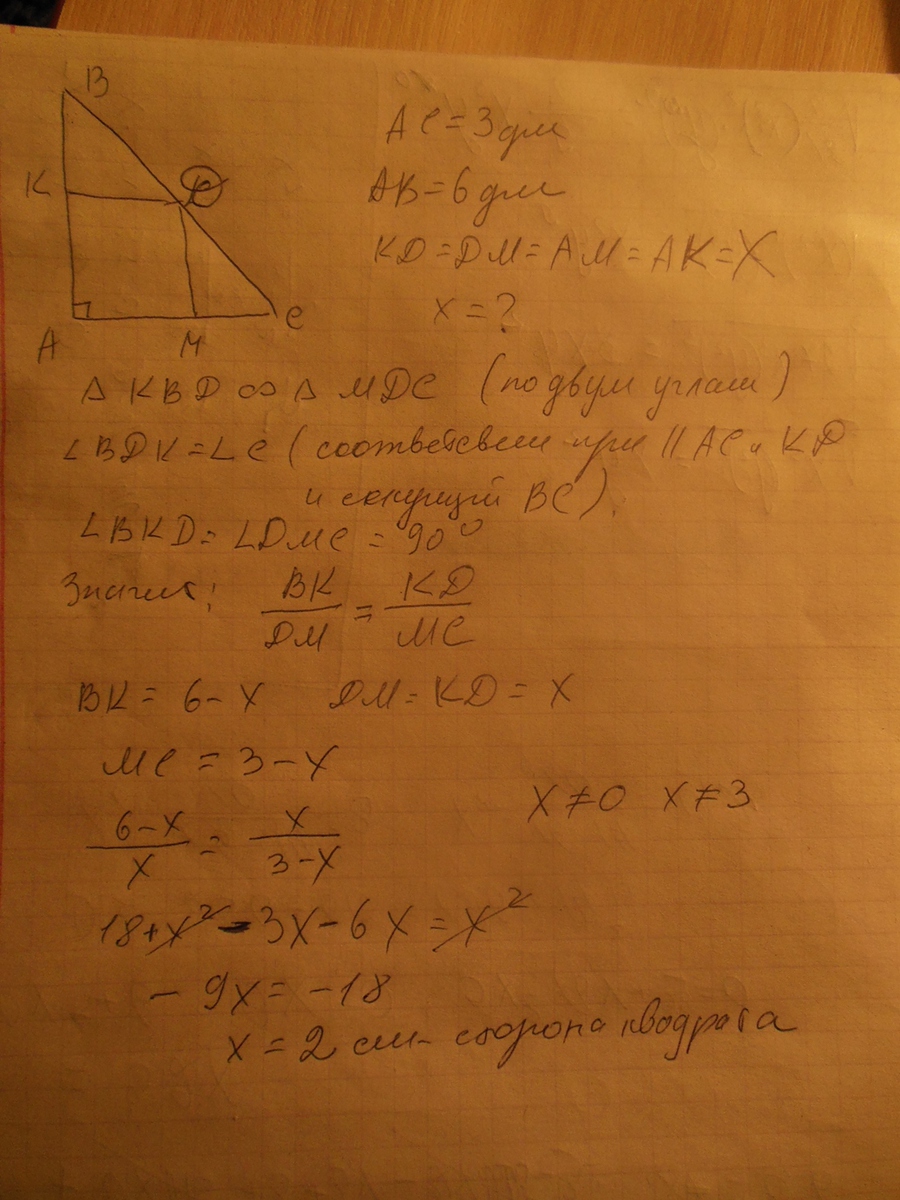 B
K
D
A
M
C
AC = 3 дм
AB = 6 дм
KD = DM = AM = AK = X
x = ?
△ KBD ∞ △ MDC (по двум углам)
∠BDK = ∠C (соответсвен при || AC и KD
и секущей BC).
∠BKD = ∠DMC = 90°
Значит: BK/DM = KD/MC
BK = 6 - x DM = KD = x
MC = 3 - x
x ≠ 0 x ≠ 3
6-x/x = x/3-x
18 + x² - 3x - 6x = x²
- 9x = -18
x = 2 см - сторона квадрата